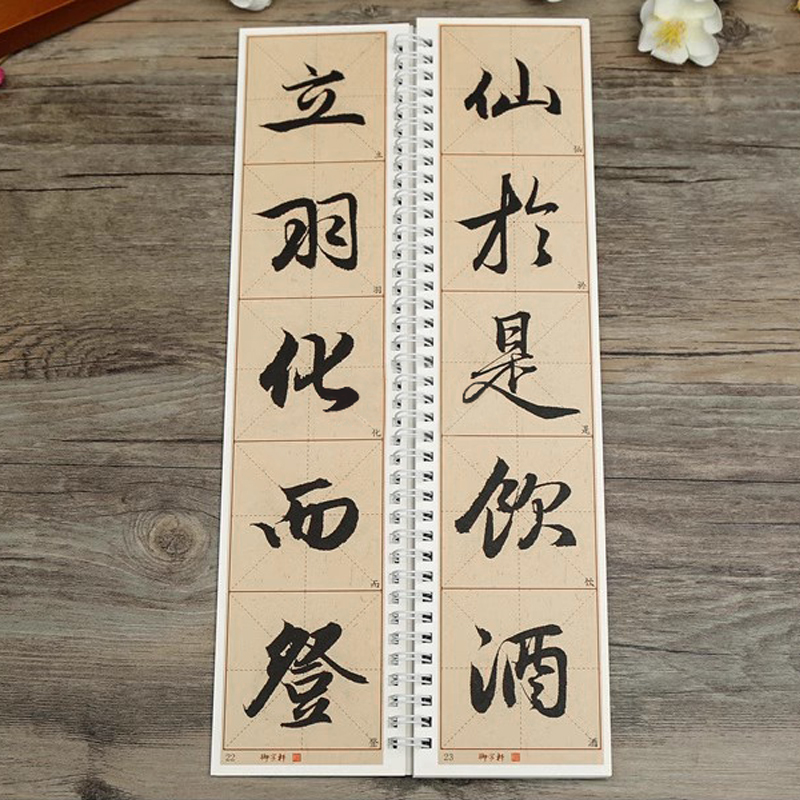 立
羽
化
而
登
仙
於
是
飲
酒
立
羽
化
而
登
仙
於
是
飲
酒
22
御字軒
23
御字軒